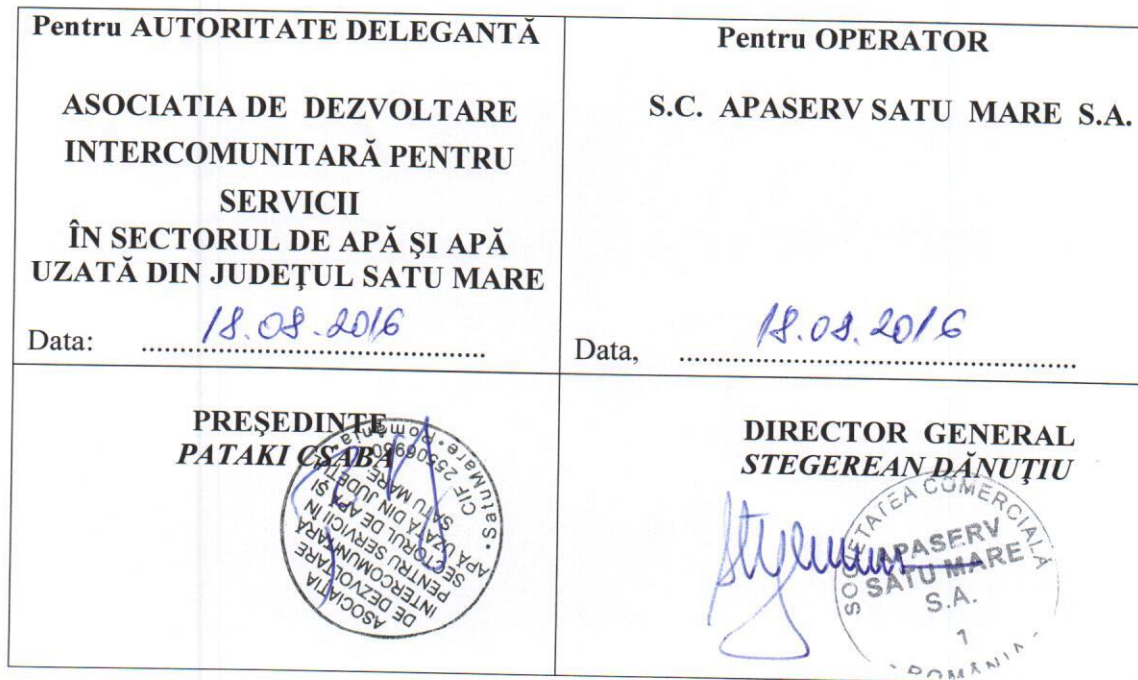 Pentru AUTORITATE DELEGANTĂ
ASOCIATIA DE DEZVOLTARE
INTERCOMUNITARĂ PENTRU
SERVICII
ÎN SECTORUL DE APĂ ŞI APĂ
UZATĂ DIN JUDEŢUL SATU MARE
Data: 18.08.2016
Pentru OPERATOR
S.C. APASERV SATU MARE S.A.
Data, 18.08.2016
PREŞEDINTE
PATAKI CSABA
ASOCIAȚIA
DE DEZVOLTARE
INTERCOMUNITARĂ
PENTRU SERVICII ÎN
SECTORUL DE APĂ ȘI
APĂ UZATĂ DIN JUDEȚUL
SATU MARE
CIF 25506980
SatuMare • Romania
DIRECTOR GENERAL
STEGEREAN DĂNUŢIU
SOCIETATEA COMERCIALĂ
APASERV
SATU MARE
S.A.
1
- ROMÂNIA -